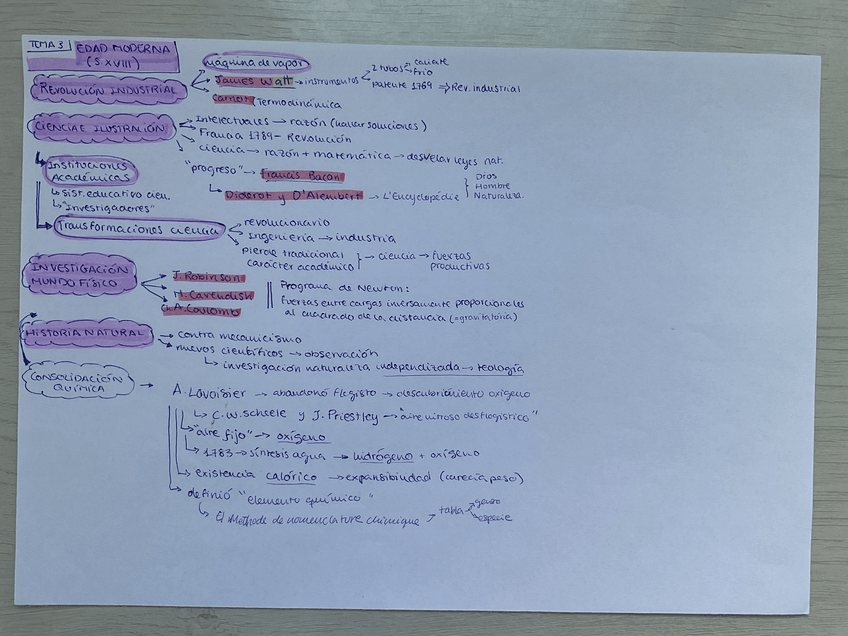 TEMA 3 EDAD MODERNA
(S. XVIII)
máquina de vapor
REVOLUCIÓN INDUSTRIAL
James Watt → instrumentos
2 tubos caliente
frío
patente 1769 ⇒ Rev. industrial
Carnot Termodinámica
CIENCIA E ILUSTRACIÓN
Intelectuales → razón (hallar soluciones)
Francia 1789 - Revolución
ciencia → razón + matemática → desvelar leyes nat.
"progreso" → Francis Bacon
Diderot y D'Alembert → L'Encyclopédie
Dios
Hombre
Naturaleza
Instituciones
Académicas
Sist. educativo cien.
"Investigadores"
Transformaciones ciencia
revolucionario
Ingeniería → industria
pierde tradicional
carácter académico
→ ciencia → fuerzas
productivas
INVESTIGACIÓN
MUNDO FÍSICO
J. Robinson
H. Cavendish
A. Coulomb
Programa de Newton:
fuerzas entre cargas inversamente proporcionales
al cuadrado de la distancia (=gravitatoria)
HISTORIA NATURAL
contra mecanicismo
nuevos científicos → observación
investigación naturaleza independizada → teología
CONSOLIDACIÓN
QUÍMICA
→ A. Lavoisier → abandonó flogisto → descubrimiento oxígeno
C. W. Scheele y J. Priestley → "aire nitroso desflogístico"
"aire fijo" → oxígeno
1783 → síntesis agua → hidrógeno + oxígeno
existencia calórico → expansibilidad (carecía peso)
definió "elemento químico"
El Méthode de nomenclature chimique
tabla género
especie